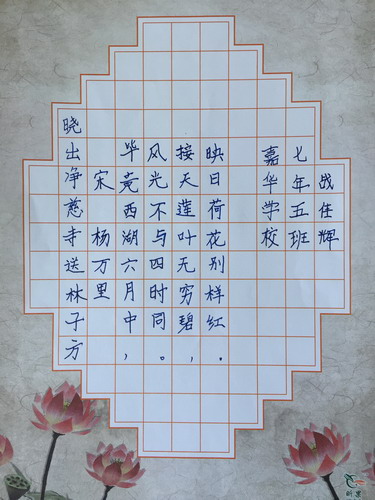 晓出净慈寺送林子方
宋 杨万里
毕竟西湖六月中，
风光不与四时同。
接天莲叶无穷碧，
映日荷花别样红.
嘉华学校
七年五班
战任辉